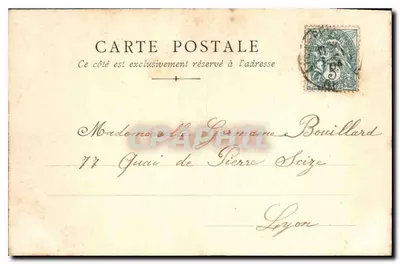 CARTE POSTALE
Ce côté est exclusivement réservé à l'adresse
5
Mademoiselle Germaine Bouillard
77 Quai de Pierre Scize
Lyon